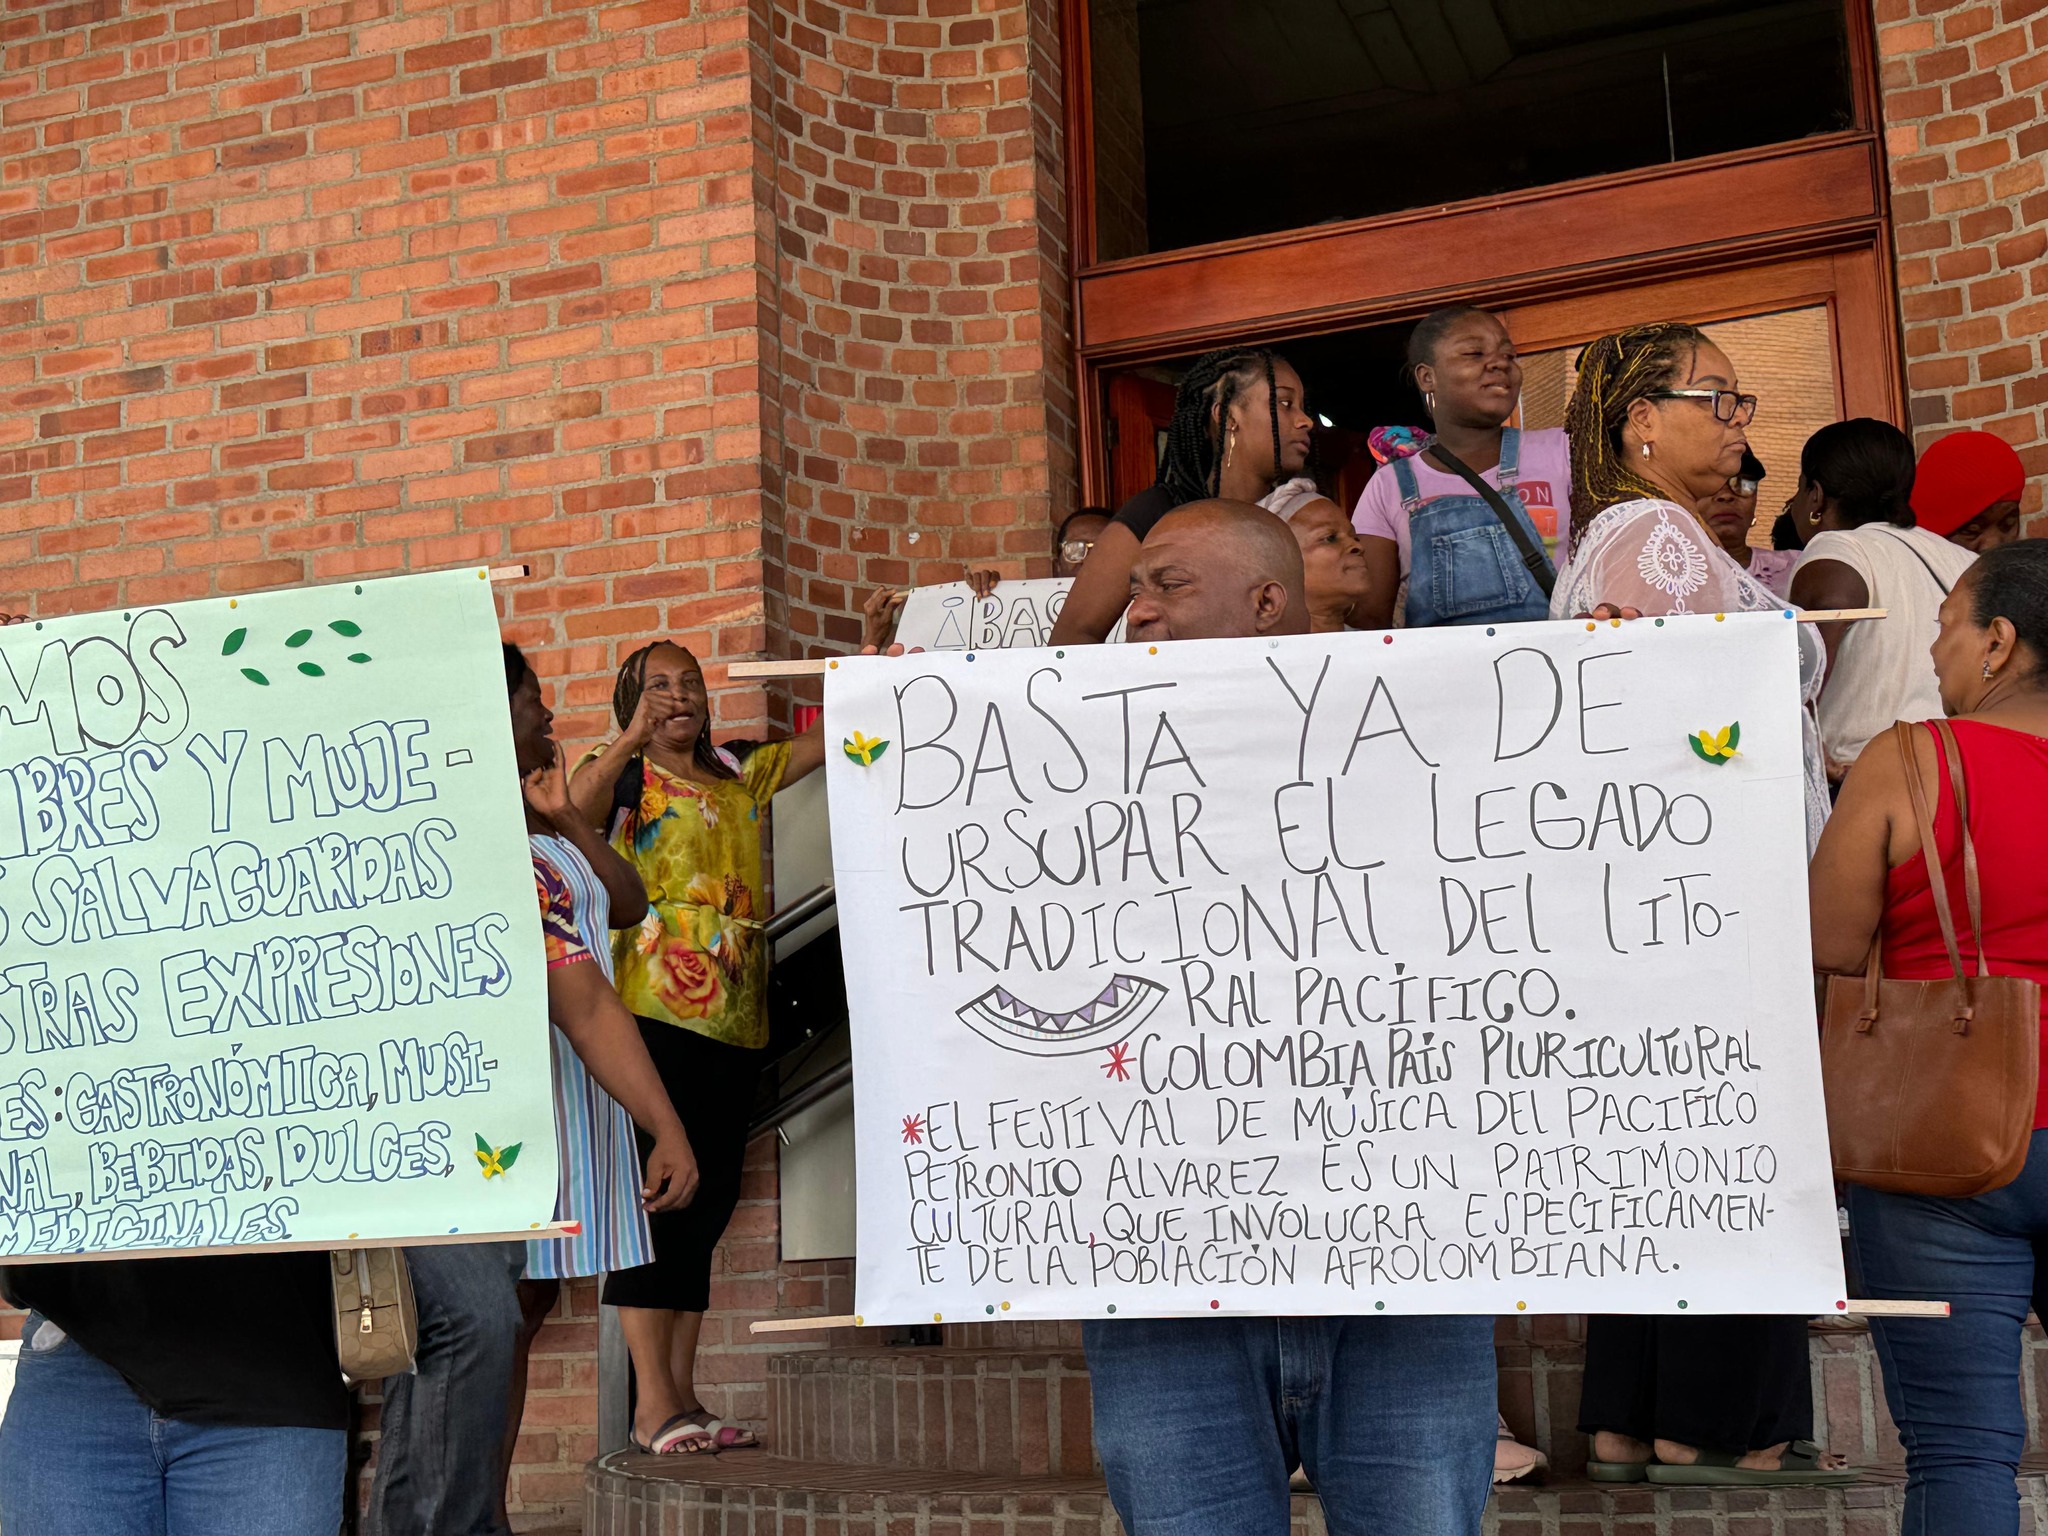 MOS
BRES Y MUJE-
S SALVAGUARDAS
STRAS EXPRESIONES
ES: GASTRONÓMICA, MUSI-
NAL, BEBIDAS, DULCES,
MEDICINALES.
¡BAS
ON
BASTA YA DE
URSUPAR EL LEGADO
TRADICIONAL DEL LITO-
RAL PACÍFICO.
*COLOMBIA PAIS PLURICULTURAL
*EL FESTIVAL DE MÚSICA DEL PACIFÍCO
PETRONIO ALVAREZ ES UN PATRIMONIO
CULTURAL, QUE INVOLUCRA ESPECIFICAMEN-
TE DE LA POBLACIÓN AFROLOMBIANA.